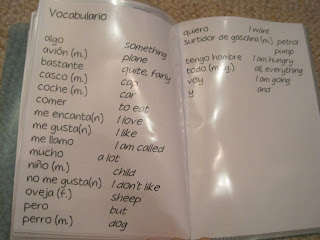 Vocabulario
algo something
avión (m.) plane
bastante quite, fairly
casco (m.) cap
coche (m.) car
comer to eat
me encanta(n) I love
me gusta(n) I like
me llamo I am called
mucho a lot
niño (m.) child
no me gusta(n) I don't like
oveja (f.) sheep
pero but
perro (m.) dog
quiero I want
surtidor de gasolina (m.) petrol
pump
tengo hambre I am hungry
todo all, everything
voy I am going
y and